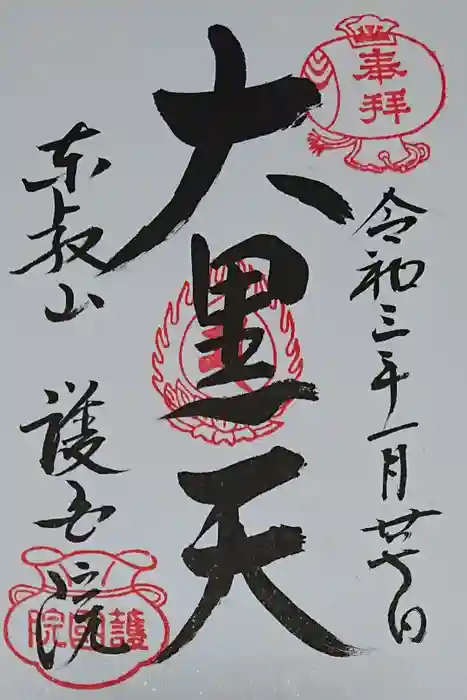 奉拝
令和三年一月廿日
大黒天
東叡山 護国院
護國院